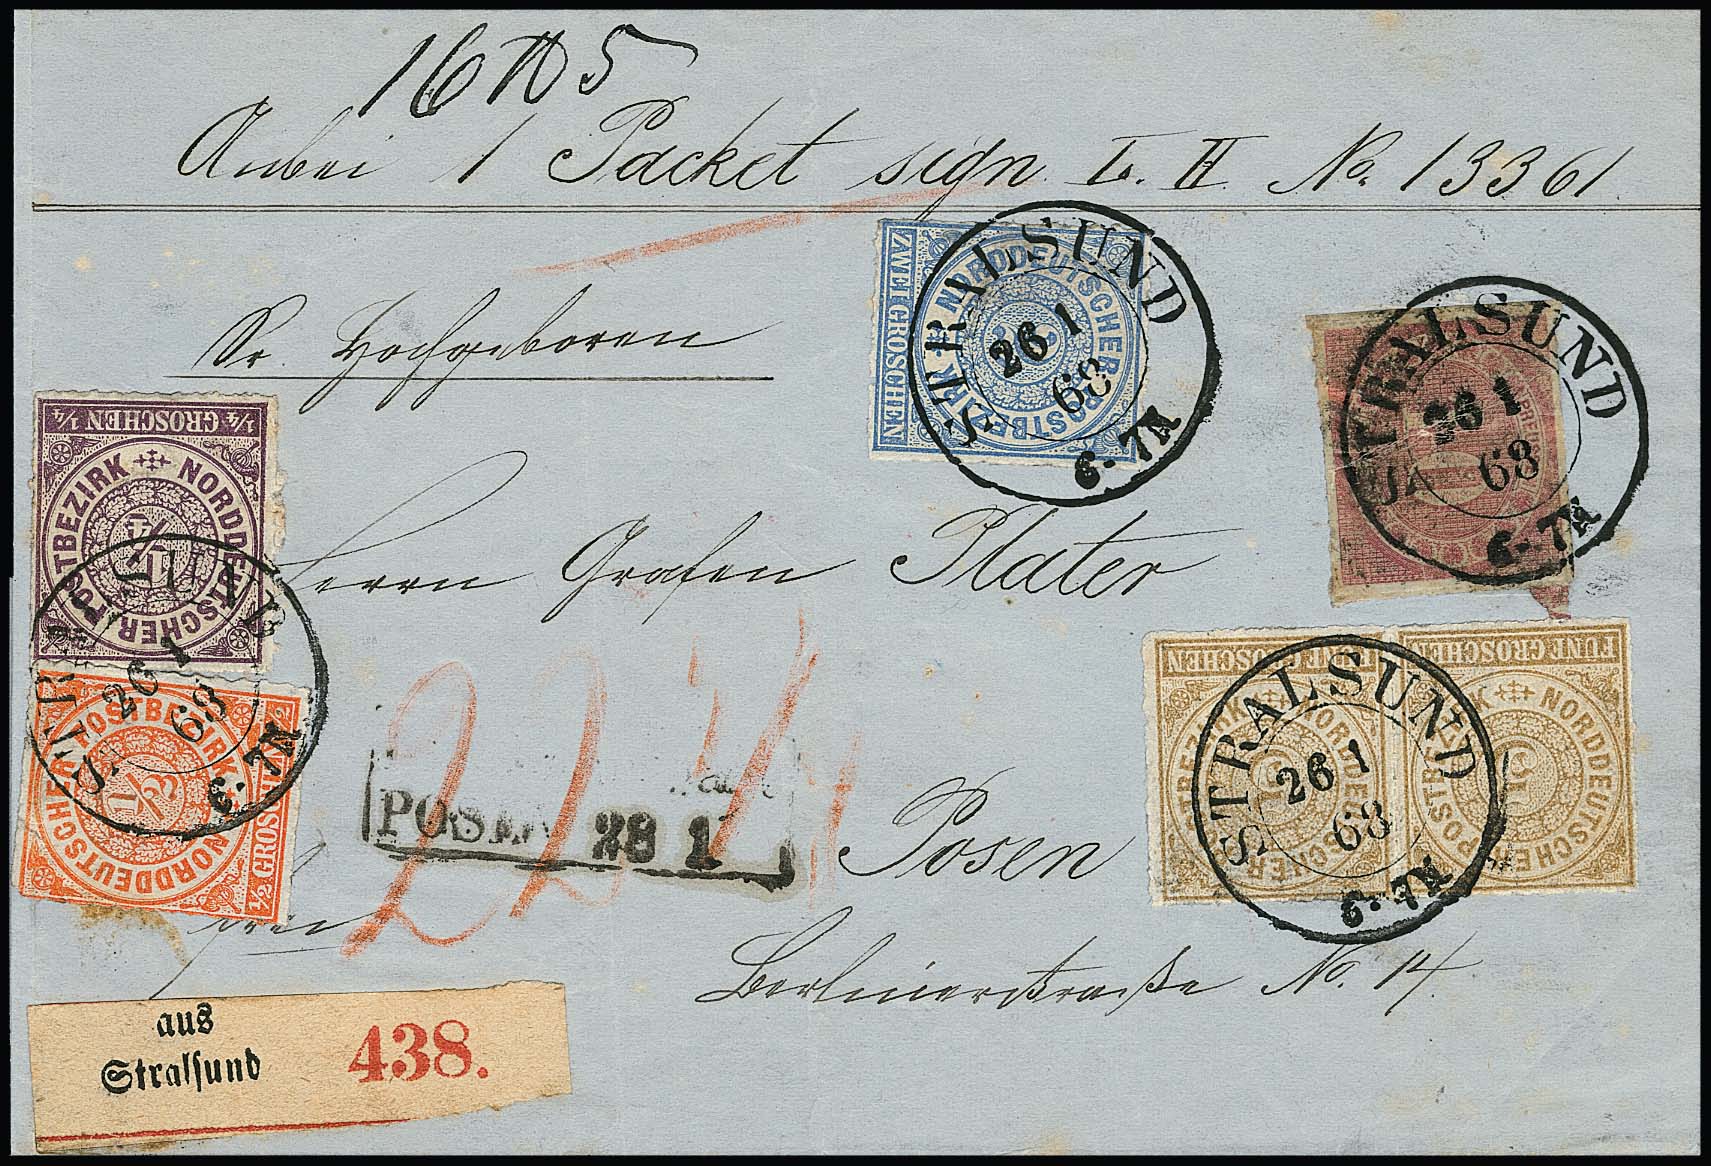 16 ℔ 5
Anbei 1 Packet sign L. H. No. 13361
Sr. Hochgeboren
Herrn Grafen Plater
Posen
Berlinerstraße No. 14.
frei
22 ¾
ZWEI GROSCHEN
NORDDEUTSCHER POSTBEZIRK
2
ZWEI GROSCHEN
STRALSUND
26 1
68
6-7N
STRALSUND
26 1
68
6-7N
10
1/4 GROSCHEN 1/4
NORDDEUTSCHER POSTBEZIRK
1/4
1/2 GROSCHEN 1/2
NORDDEUTSCHER POSTBEZIRK
1/2
STRALSUND
26 1
68
6-7N
FÜNF GROSCHEN
NORDDEUTSCHER POSTBEZIRK
5
FÜNF GROSCHEN
NORDDEUTSCHER POSTBEZIRK
5
STRALSUND
26 1
68
6-7N
POSEN 28 1
aus
Stralsund
438.